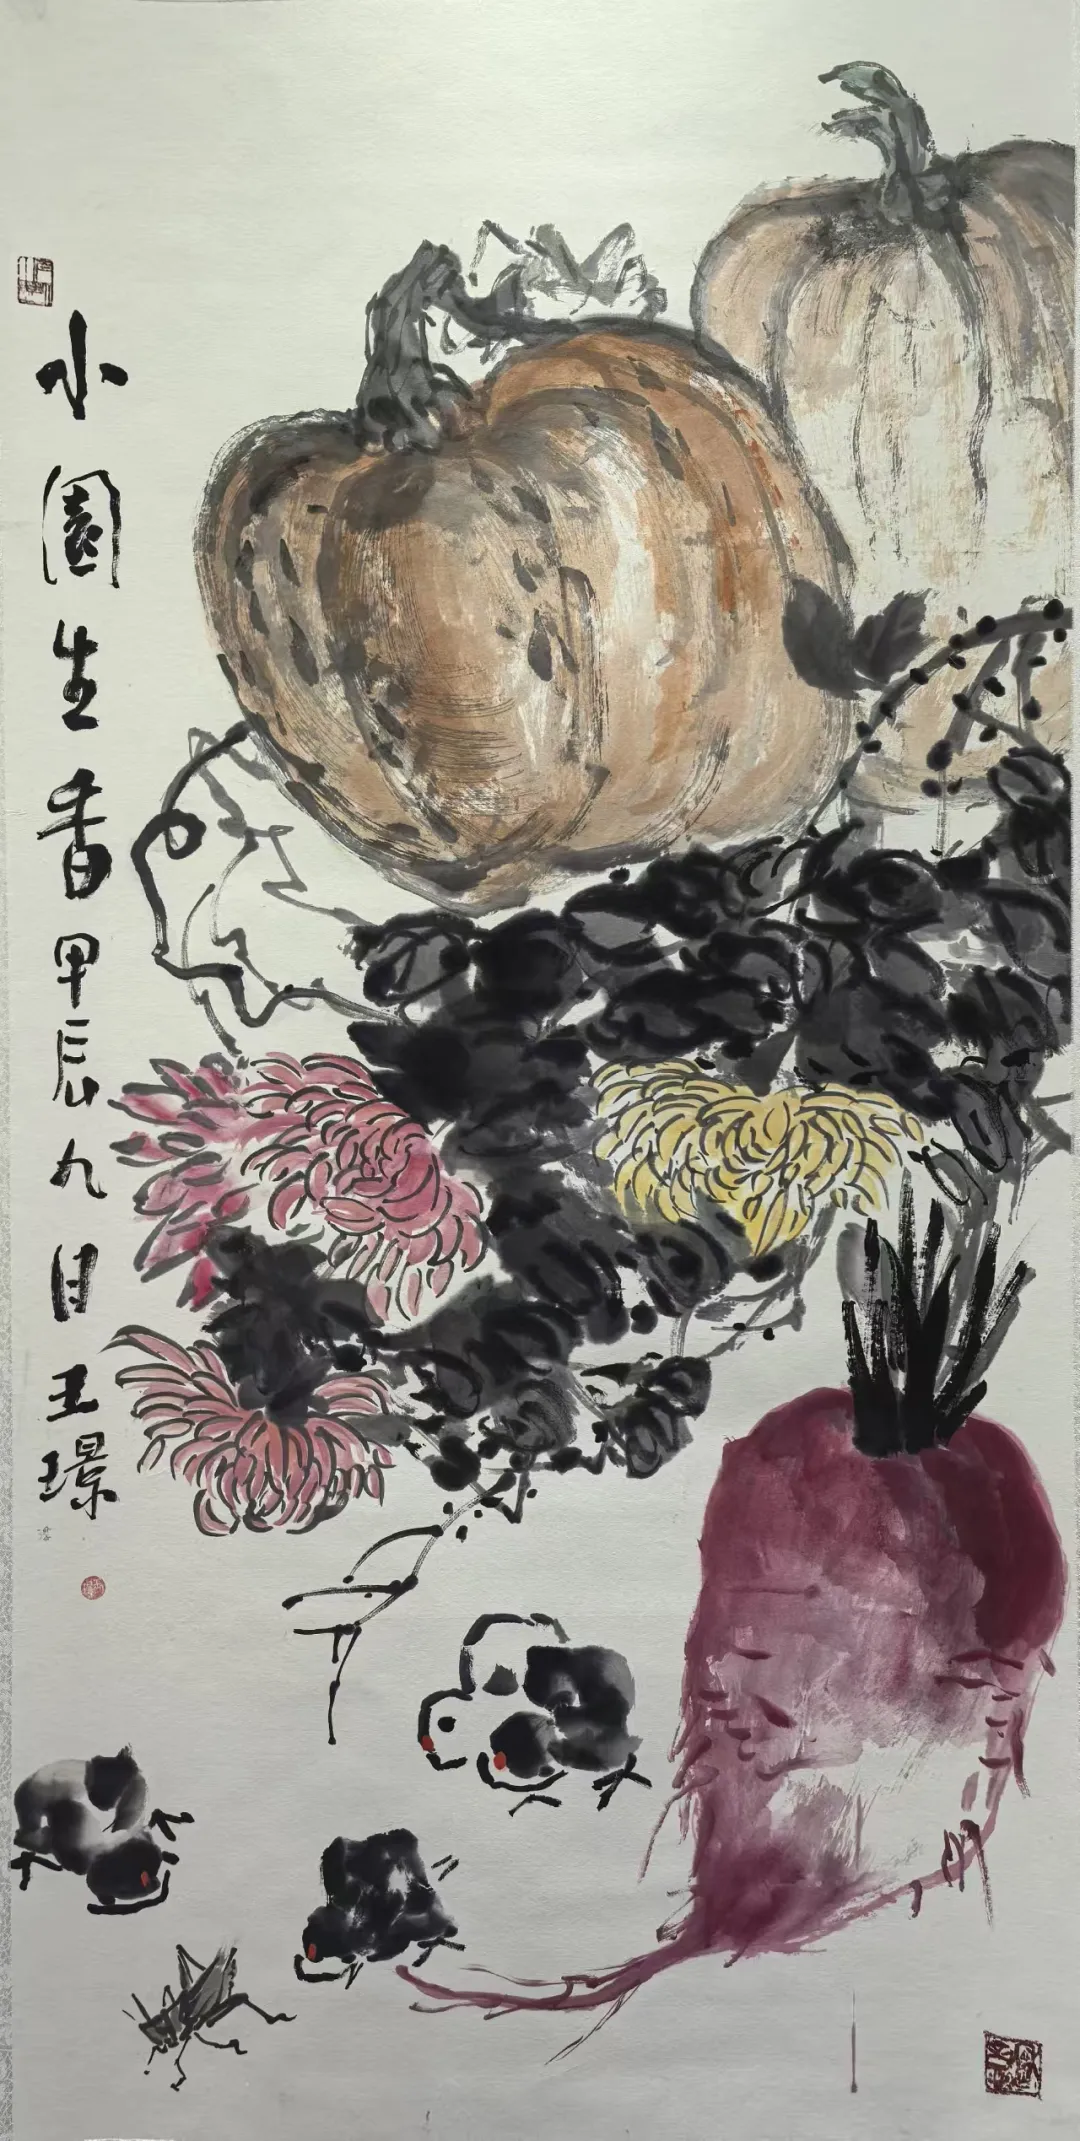 小園生香甲辰九月王璟